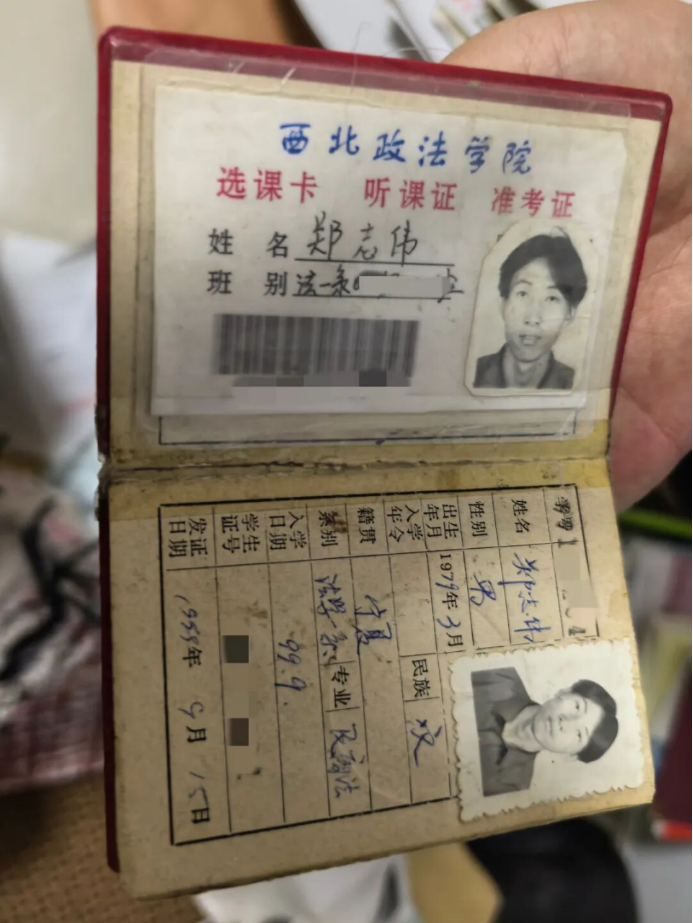 西北政法学院
选课卡 听课证 准考证
姓名 郑志伟
班别 法一系
学号
姓名 郑志伟
性别 男
出生年月 1979年3月 民族 汉
入学年令
籍贯 宁夏
系别 法学系 专业 民商法
入学日期 99.9.
学生证号
发证日期 1999年9月15日